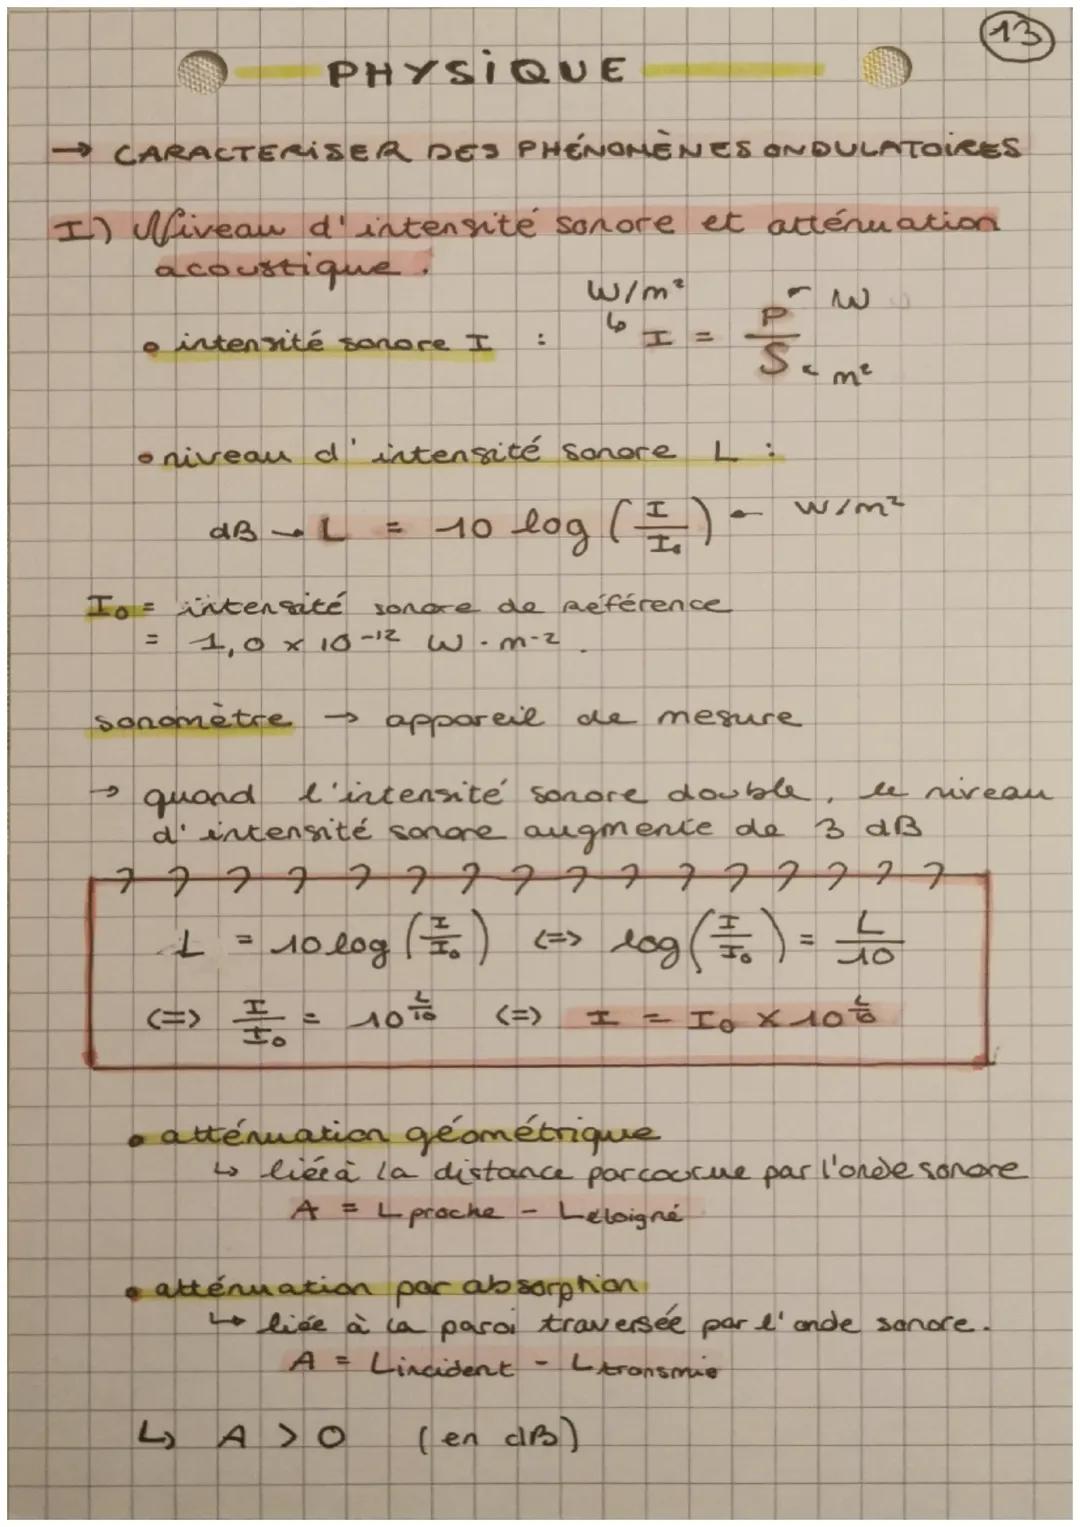 13
PHYSIQUE
→ CARACTERISER DES PHÉNOMÈNES ONDULATOIRES
I) Niveau d'intensité sonore et atténuation
acoustique.
• intensité sonore I : W/m² ↳ I = P/S ← W ← m²
• niveau d'intensité sonore L :
dB → L = 10 log (I/I₀) ← W/m²
I₀ = intensité sonore de référence
= 1,0 × 10⁻¹² W.m-2.
sonomètre → appareil de mesure
→ quand l'intensité sonore double, le niveau
d'intensité sonore augmente de 3 dB
L = 10 log (I/I₀) <=> log (I/I₀) = L/10
<=> I/I₀ = 10^(L/10) <=> I = I₀ × 10^(L/10)
• atténuation géométrique
↳ liée à la distance parcourue par l'onde sonore
A = Lproche - Léloigné
• atténuation par absorption
↳ liée à la paroi traversée par l'onde sonore.
A = Lincident - Ltransmis
↳ A > 0 (en dB)